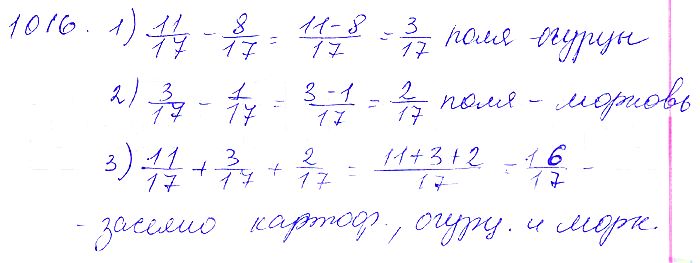 1016. 1) 11/17 - 8/17 = (11-8)/17 = 3/17 поля - огурцы
2) 3/17 - 1/17 = (3-1)/17 = 2/17 поля - морковь
3) 11/17 + 3/17 + 2/17 = (11+3+2)/17 = 16/17 -
- засеяно картоф., огурц. и морк.